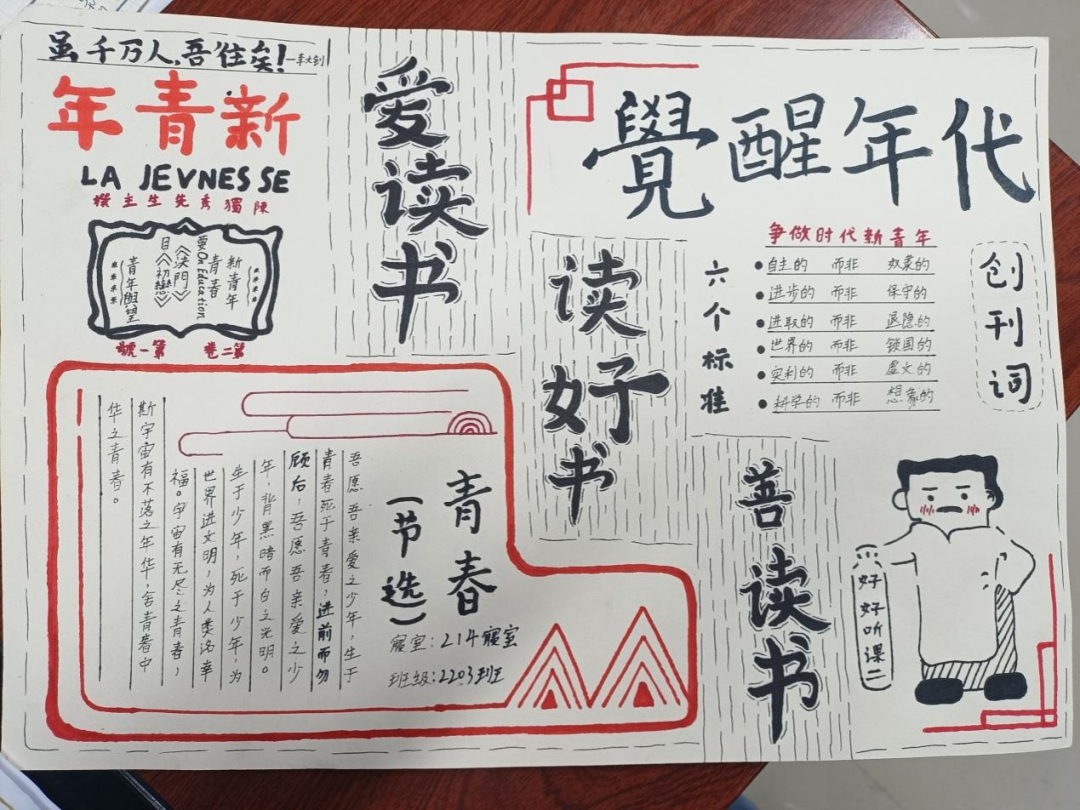 虽千万人,吾往矣!—李大钊
新青年
LA JEVNESSE
陳獨秀先生主撰
新青年
青春
On Education
《決鬥》
《初戀》
第二卷 第一號
爱读书
读好书
善读书
覺醒年代
争做时代新青年
六个标准
自主的 而非 奴隶的
进步的 而非 保守的
进取的 而非 退隐的
世界的 而非 锁国的
实利的 而非 虚文的
科学的 而非 想象的
创刊词
青春
(节选)
吾愿吾亲爱之少年,生于
青春死于青春,进前而勿
顾后,吾愿吾亲爱之少
年,背黑暗而白之光明。
生于少年,死于少年,为
世界进文明,为人类造幸
福。宇宙有无尽之青春,
斯宇宙有不落之年华,舍青春中
华之青春。
寢室:214寢室
班级:2203班
好好听课